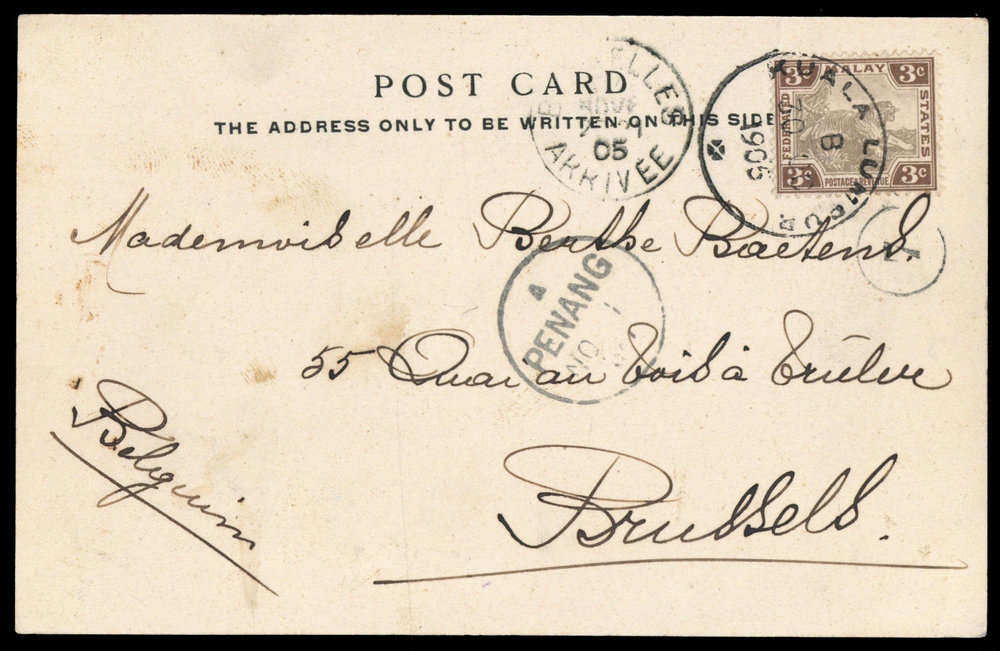 POST CARD
THE ADDRESS ONLY TO BE WRITTEN ON THIS SIDE
ELLES
05
ARRIVÉE
KUALA LUMPUR
B
1905
3c MALAY 3c
FEDERATED
STATES
3c POSTAGE & REVENUE 3c
Mademoiselle Berthe Baetens.
A
PENANG
NO 1
55 Quai au bois à brûler
Belgium
Brussels.